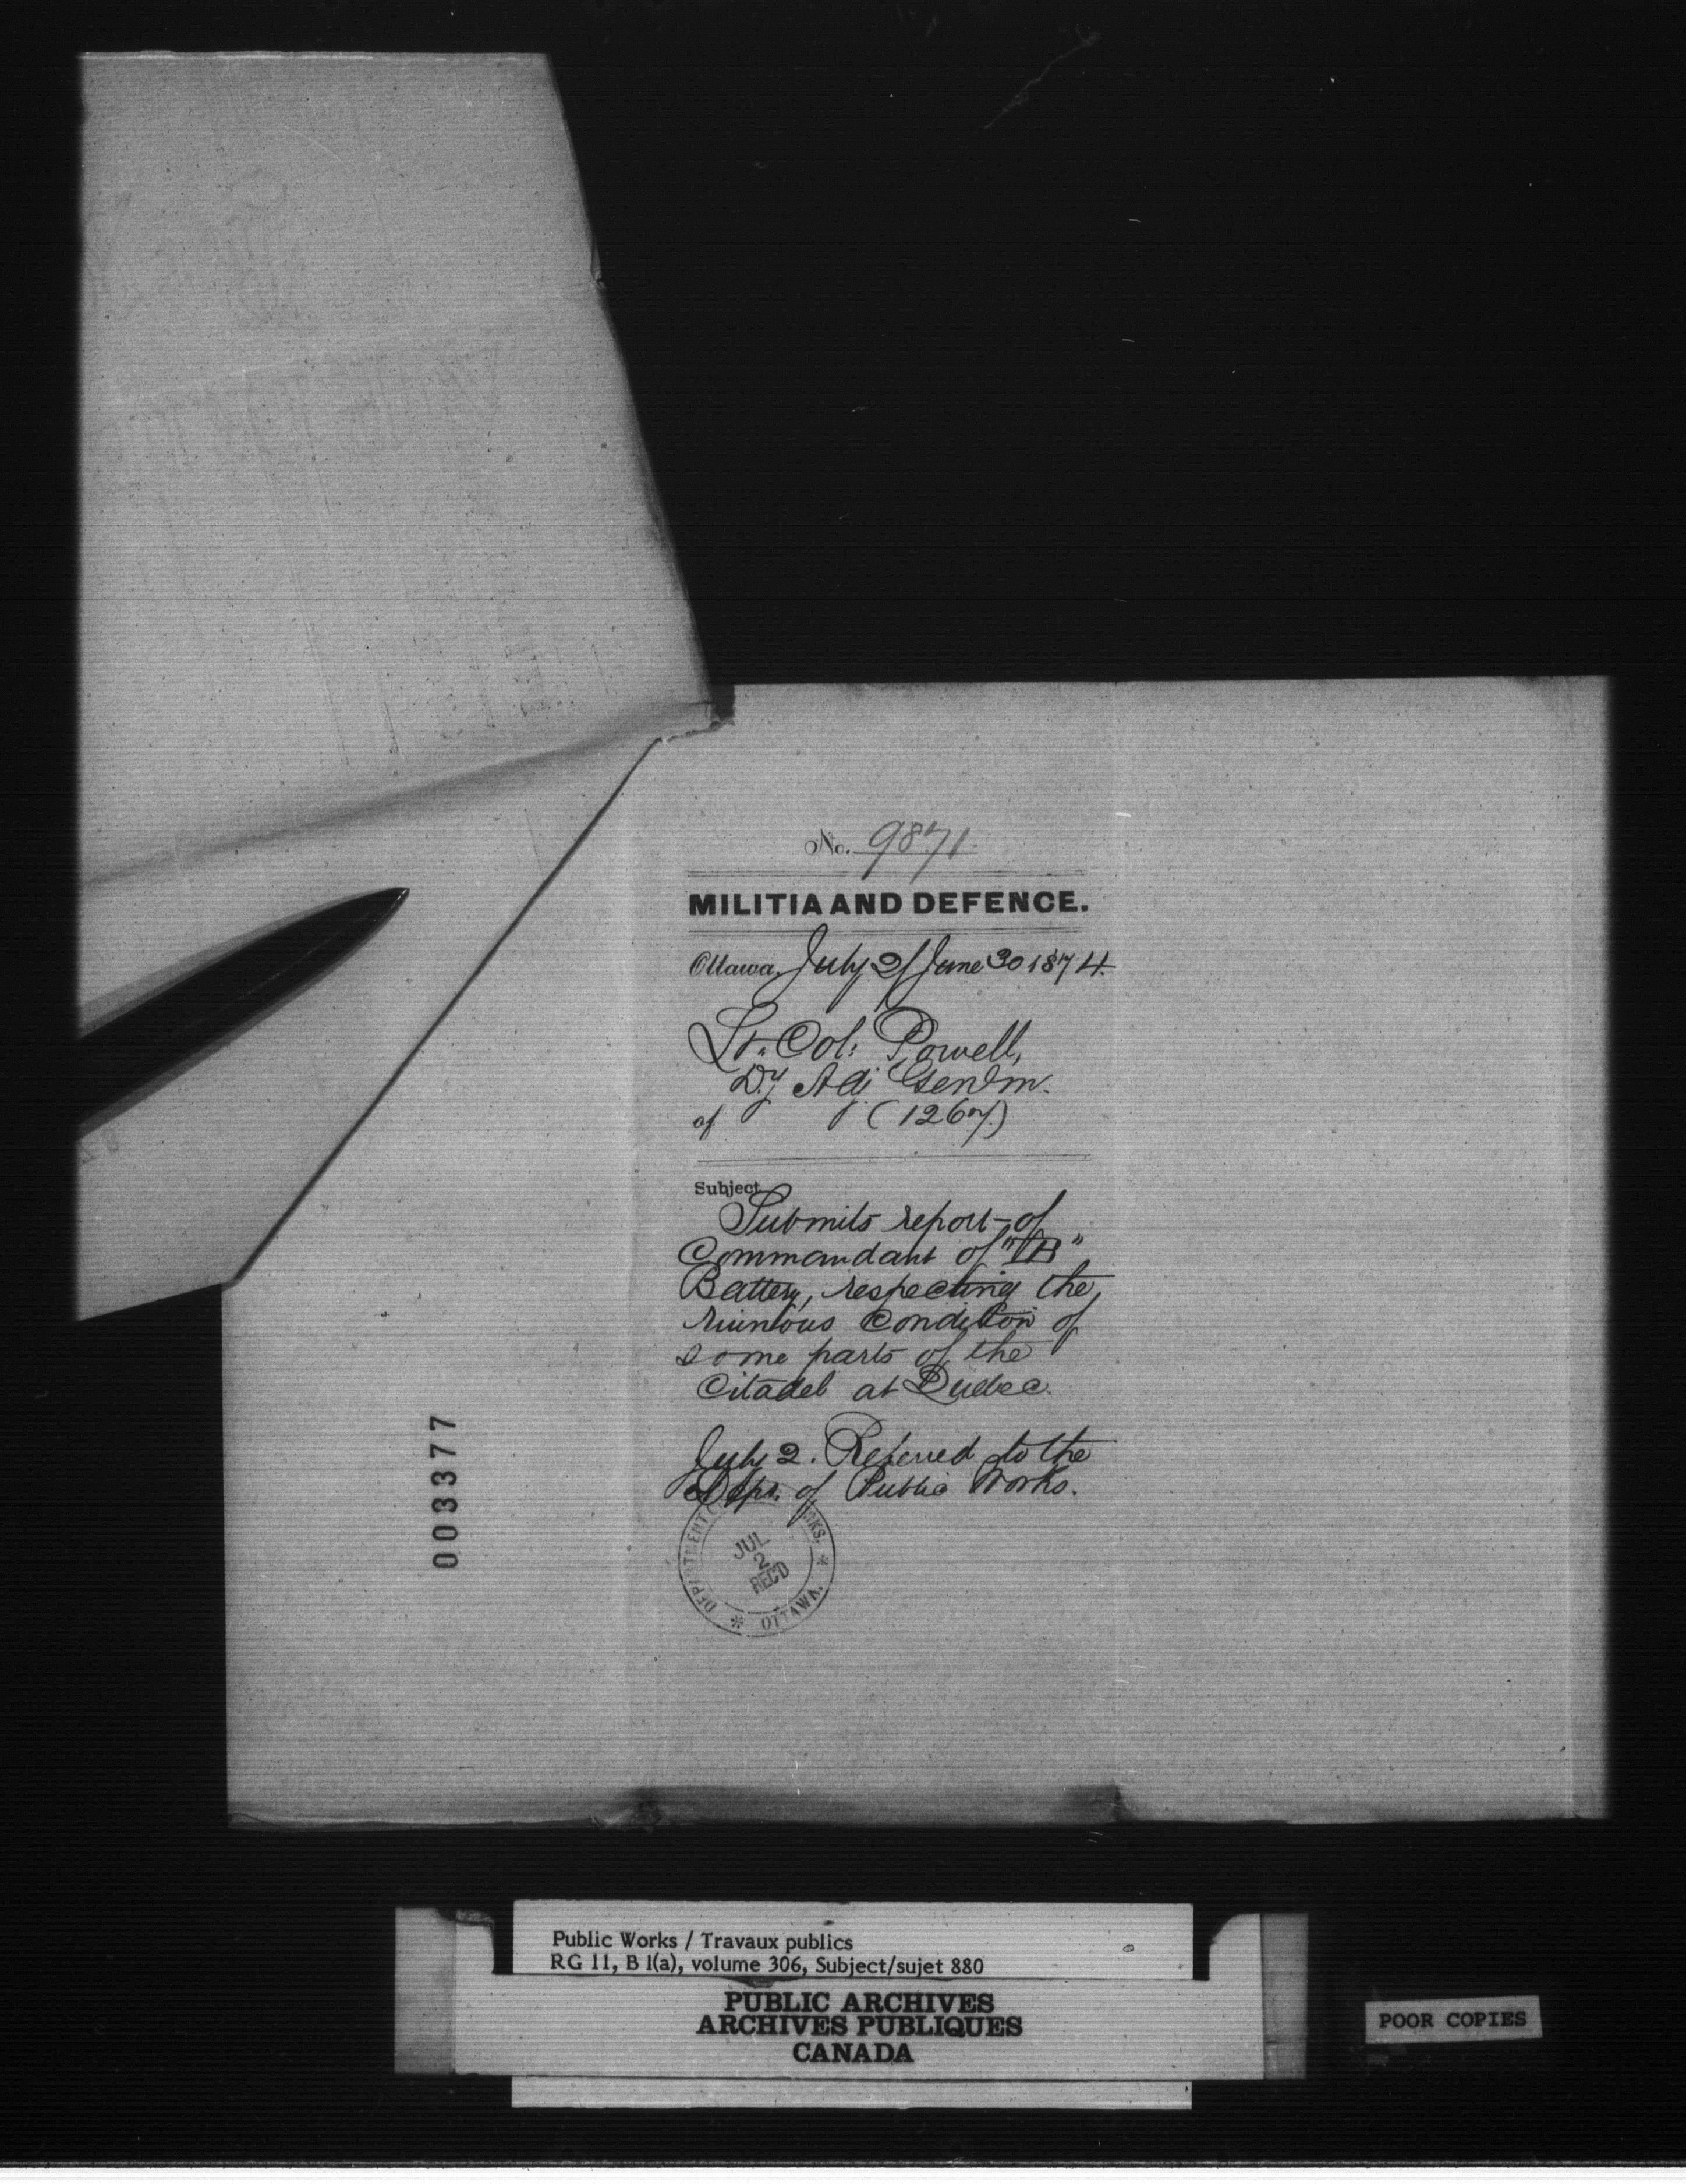 No. 9871.
MILITIA AND DEFENCE.
Ottawa, July 2/June 30 1874.
Lt. Col: Powell,
Dy Adj Genl M.
of (1267)
Subject
Submits report of
Commandant of "B"
Battery, respecting the
ruinous condition of
some parts of the
Citadel at Quebec.
July 2. Referred to the
Dept. of Public Works.
DEPARTMENT RKS. * OTTAWA. *
JUL
2
REC'D
003377
Public Works / Travaux publics
RG 11, B 1(a), volume 306, Subject/sujet 880
PUBLIC ARCHIVES
ARCHIVES PUBLIQUES
CANADA
POOR COPIES